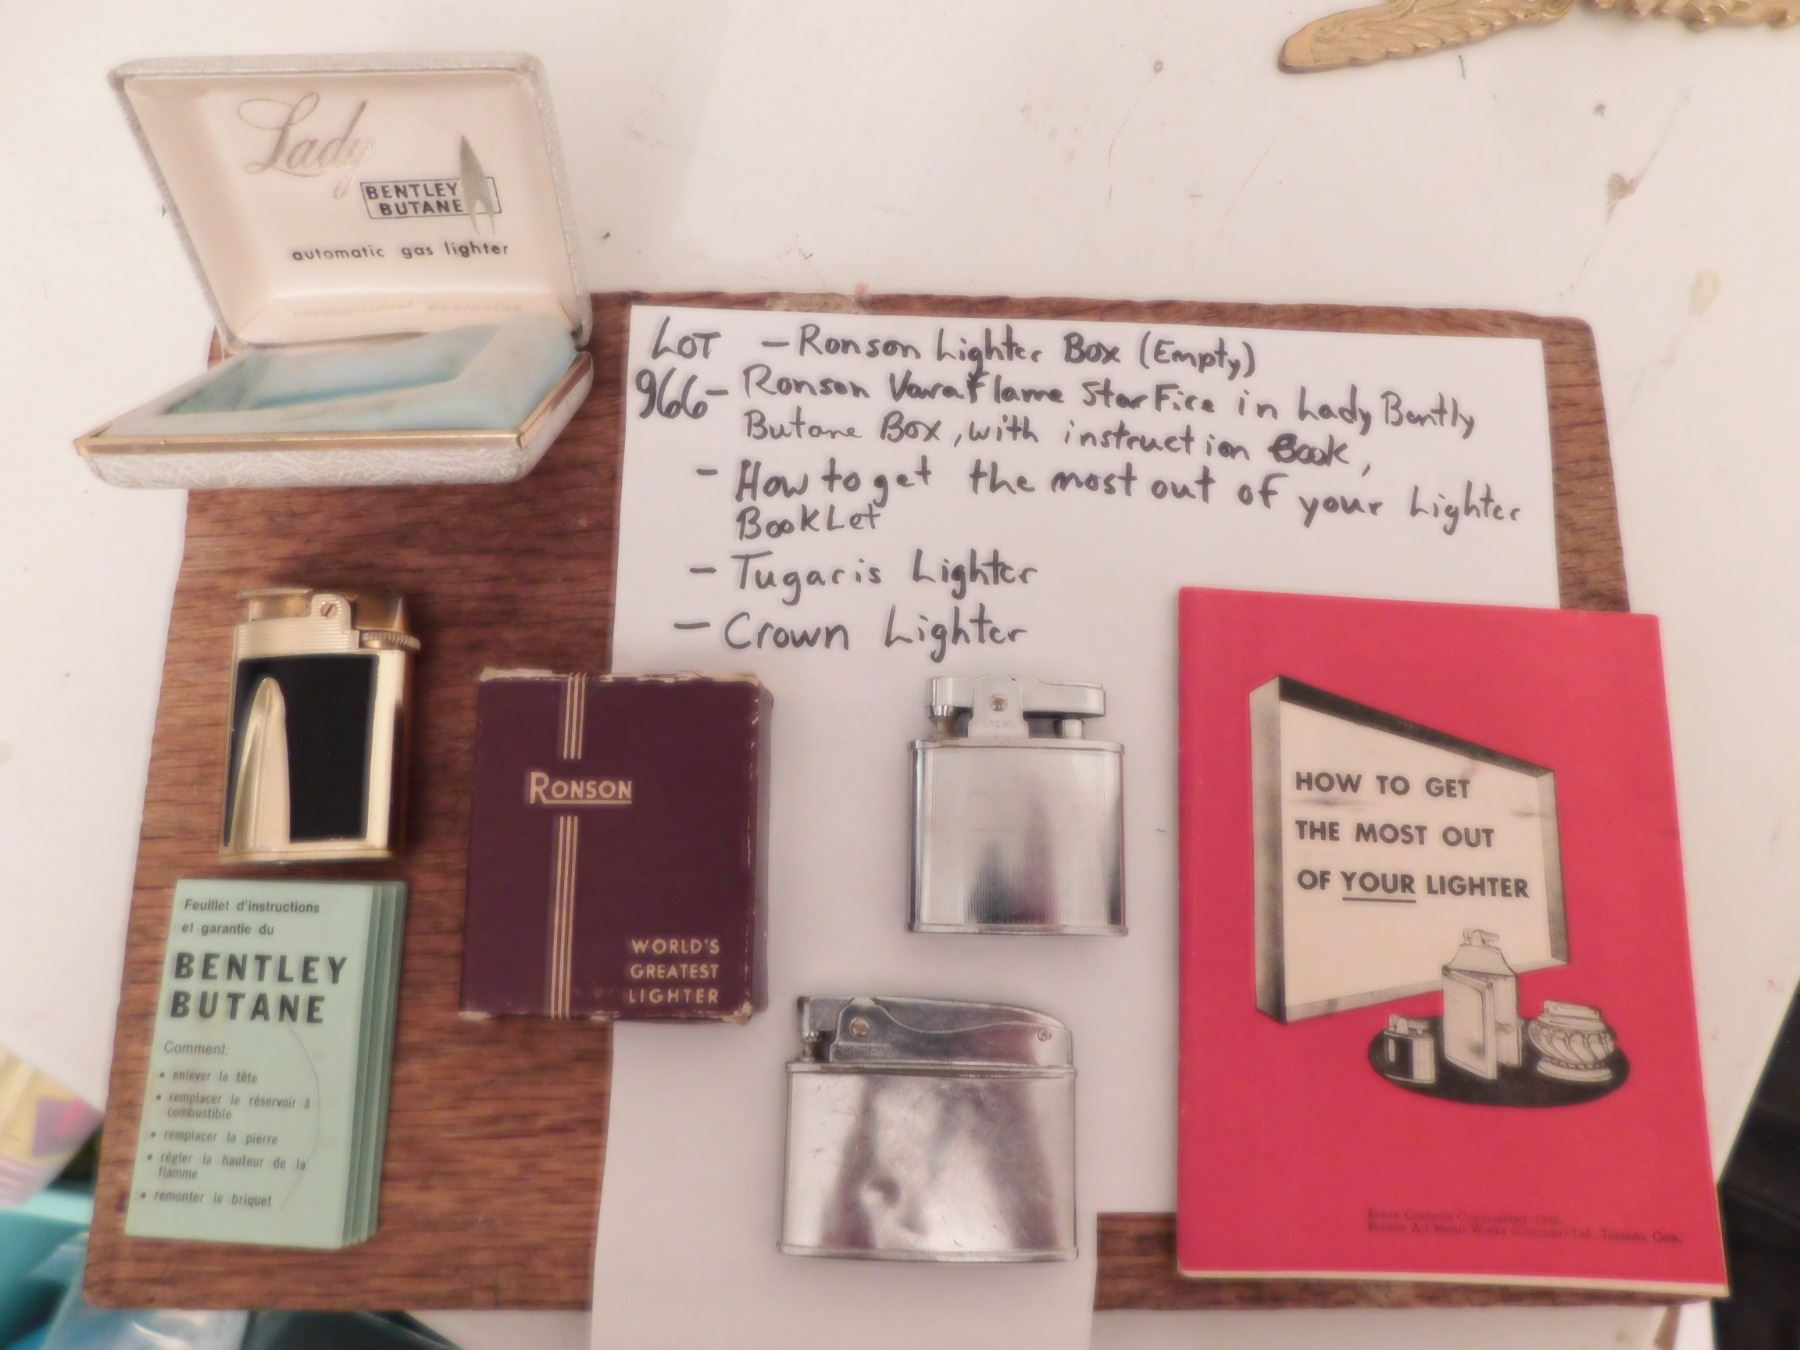 Lady
BENTLEY
BUTANE
automatic gas lighter
unconditional guarantee
LOT - Ronson Lighter Box (Empty)
966 - Ronson VaraFlame StarFire in Lady Bently
Butane Box, with instruction Book,
- How to get the most out of your Lighter
BookLet
- Tugaris Lighter
- Crown Lighter
Feuillet d'instructions
et garantie du
BENTLEY
BUTANE
Comment:
• enlever la tête
• remplacer le réservoir à
combustible
• remplacer la pierre
• régler la hauteur de la
flamme
• remonter le briquet
RONSON
WORLD'S
GREATEST
LIGHTER
CROWN
HOW TO GET
THE MOST OUT
OF YOUR LIGHTER
Entire Contents Copyrighted
Ronson Art Metal Works (Canada) Ltd., Toronto, Can.